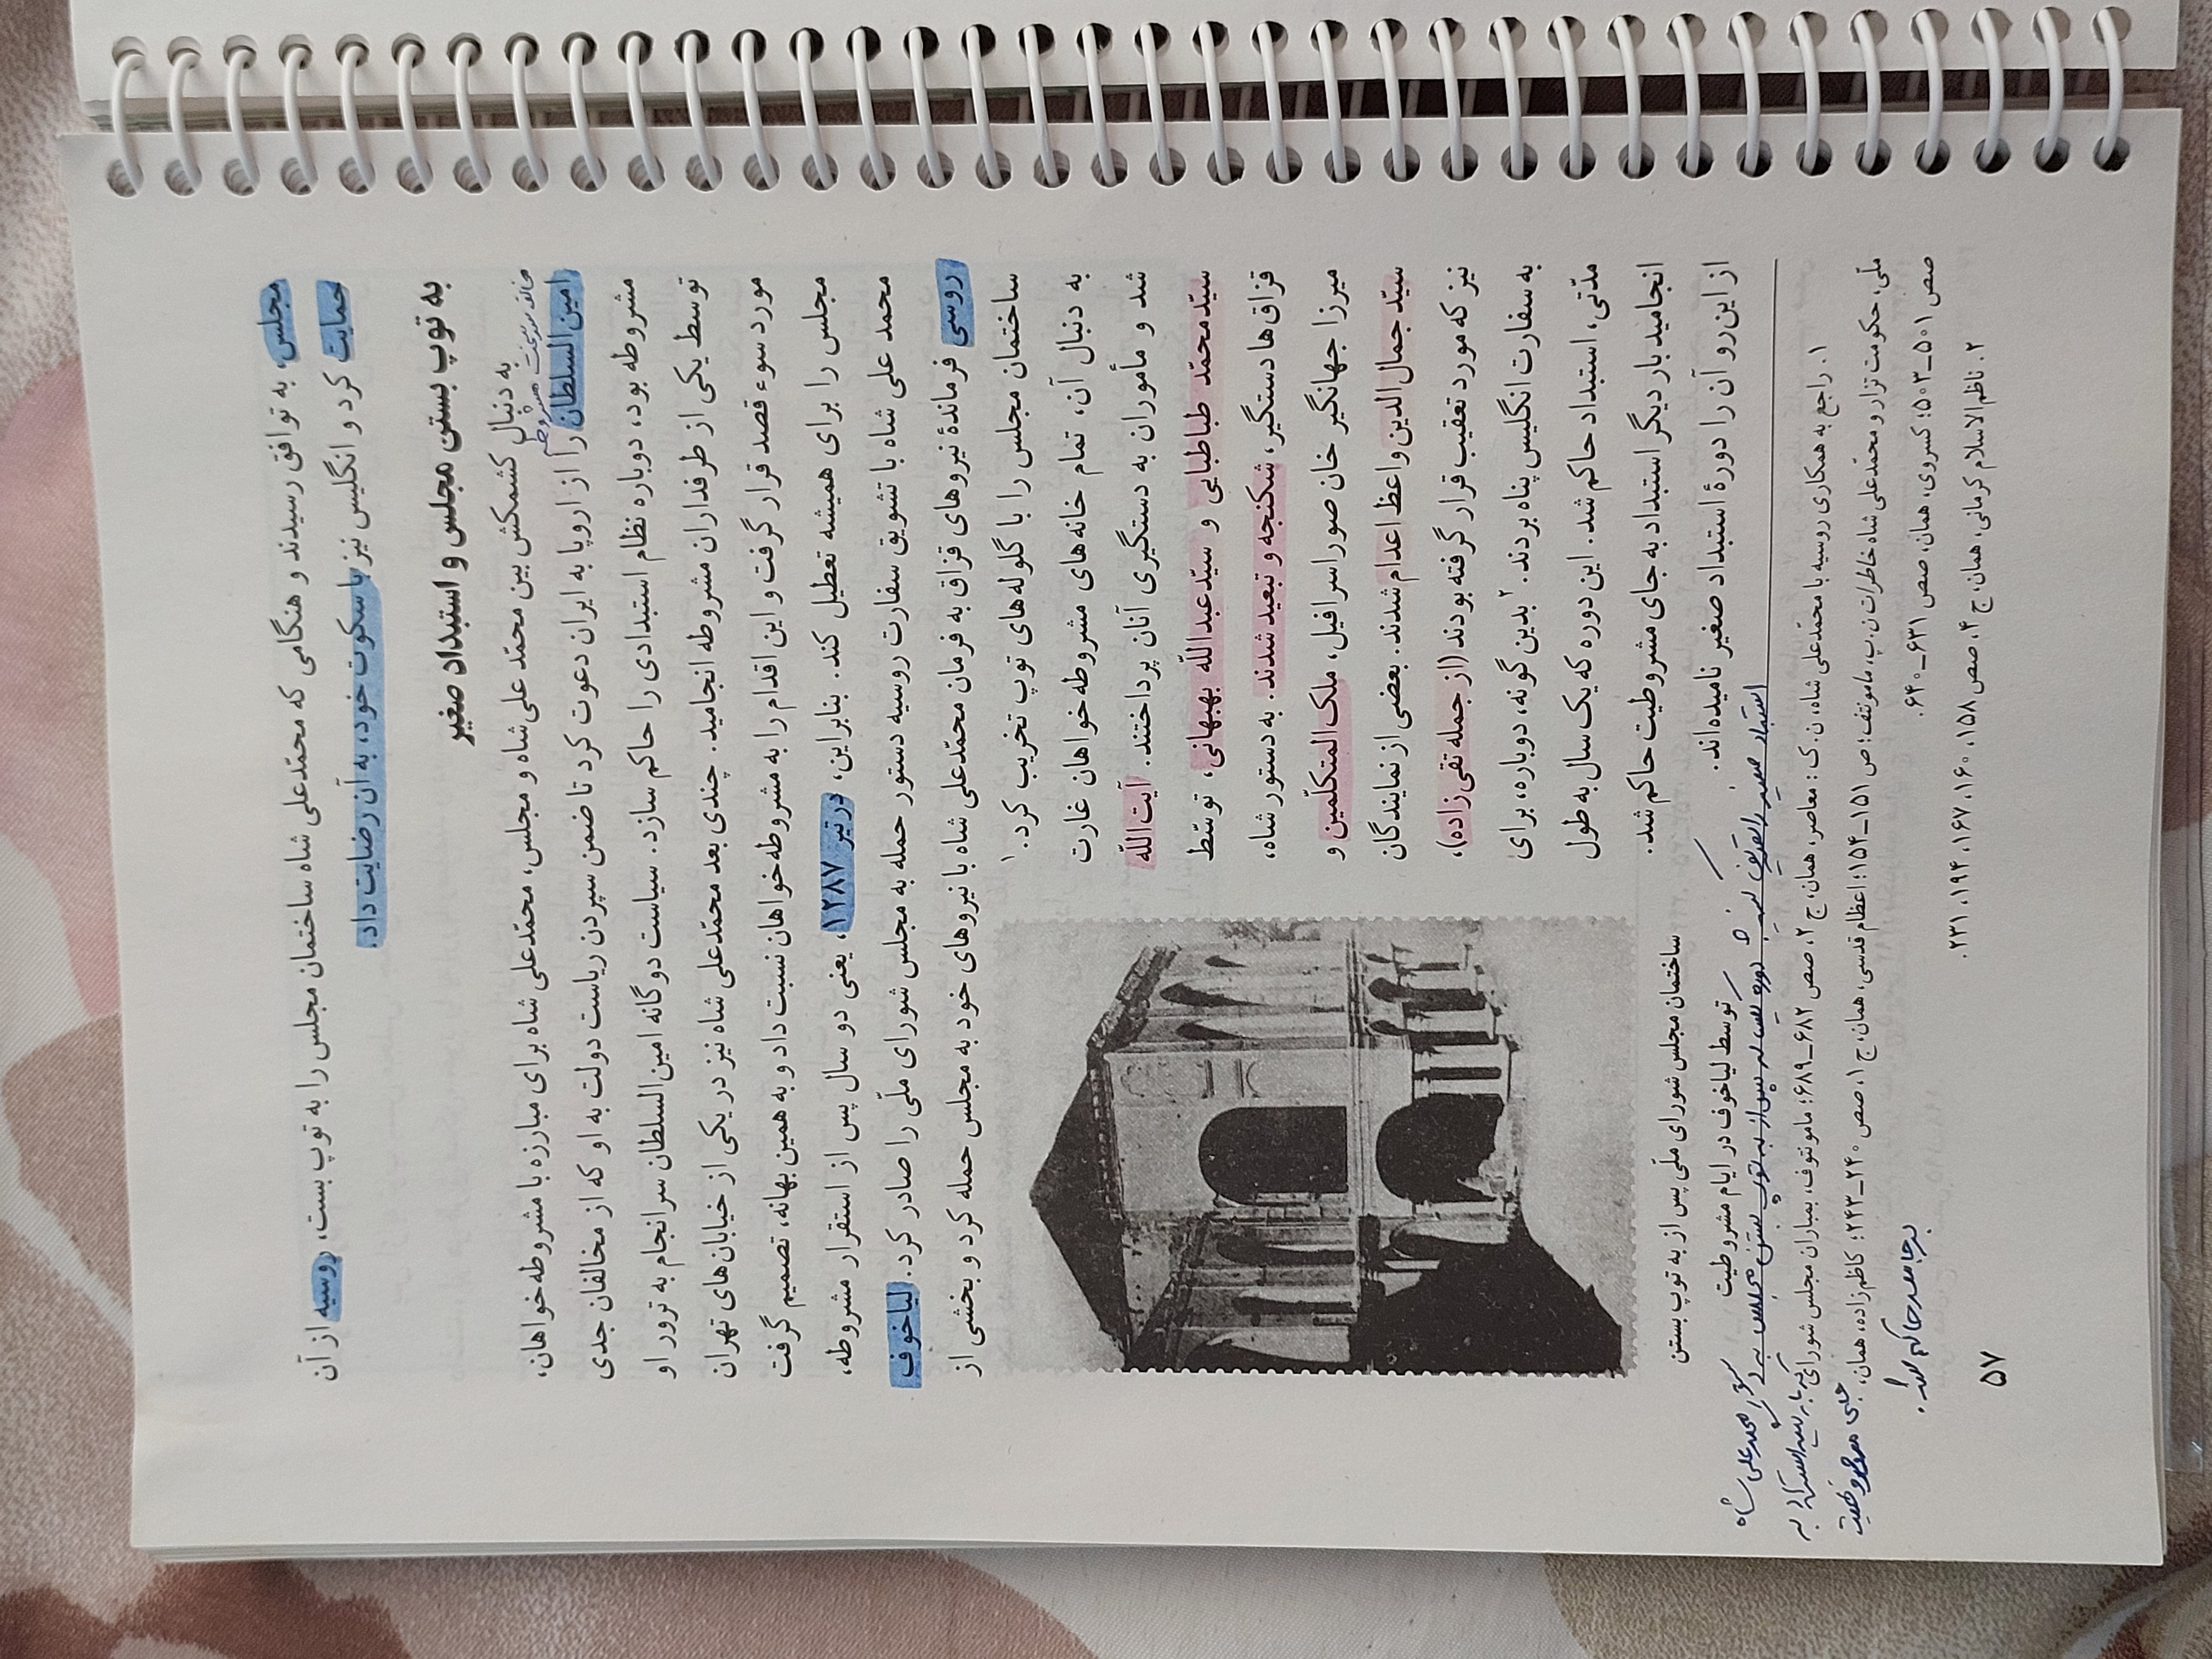 مجلس، به توافق رسیدند و هنگامی که محمّدعلی شاه ساختمان مجلس را به توپ بست، روسیه از آن
حمایت کرد و انگلیس نیز با سکوت خود، به آن رضایت داد.
به توپ بستن مجلس و استبداد صغیر
به دنبال کشمکش بین محمّد علی شاه و مجلس، محمّدعلی شاه برای مبارزه با مشروطه‌خواهان،
مخالف سرسخت مشروطه
امین‌السلطان را از اروپا به ایران دعوت کرد تا ضمن سپردن ریاست دولت به او که از مخالفان جدی
مشروطه بود، دوباره نظام استبدادی را حاکم سازد. سیاست دوگانه امین‌السلطان سرانجام به ترور او
توسط یکی از طرفداران مشروطه انجامید. چندی بعد محمّدعلی شاه نیز در یکی از خیابان‌های تهران
مورد سوء قصد قرار گرفت و این اقدام را به مشروطه‌خواهان نسبت داد و به همین بهانه، تصمیم گرفت
مجلس را برای همیشه تعطیل کند. بنابراین، در تیر ۱۲۸۷، یعنی دو سال پس از استقرار مشروطه،
محمد علی شاه با تشویق سفارت روسیه دستور حمله به مجلس شورای ملّی را صادر کرد. لیاخوف
روسی فرماندهٔ نیروهای قزاق به فرمان محمّدعلی شاه با نیروهای خود به مجلس حمله کرد و بخشی از
ساختمان مجلس را با گلوله‌های توپ تخریب کرد.۱
به دنبال آن، تمام خانه‌های مشروطه خواهان غارت
شد و مأموران به دستگیری آنان پرداختند. آیت‌الله
سیّد محمّد طباطبایی و سیّد عبدالله بهبهانی، توسّط
قزاق‌ها دستگیر، شکنجه و تبعید شدند. به دستور شاه،
میرزا جهانگیر خان صوراسرافیل، ملک المتکلّمین و
سیّد جمال الدین واعظ اعدام شدند. بعضی از نمایندگان
نیز که مورد تعقیب قرار گرفته بودند (از جمله تقی زاده)،
به سفارت انگلیس پناه بردند.۲ بدین گونه، دوباره، برای
مدّتی، استبداد حاکم شد. این دوره که یک سال به طول
انجامید بار دیگر استبداد به جای مشروطیت حاکم شد.
از این رو آن را دورهٔ استبداد صغیر نامیده‌اند.
ساختمان مجلس شورای ملّی پس از به توپ بستن
توسط لیاخوف در ایام مشروطیت
استبداد صغیر را تعریف کنید؟ دوره یک ساله پس از به توپ بستن مجلس به دستور محمدعلی شاه
که بار دیگر استبداد به
جای مشروطیت
بر جامعه حاکم شد.
۱. راجع به همکاری روسیه با محمّدعلی شاه، ن. ک: معاصر، همان، ج ۲، صص ۶۸۲ـ۶۸۹؛ مامونتوف، بمباران مجلس شورای
ملّی، حکومت تزار و محمّدعلی شاه خاطرات ن.پ. مامونتف؛ ص ۱۵۱ـ۱۵۴؛ اعظام قدسی، همان، ج ۱، صص ۲۴۰ـ۲۴۳؛ کاظم‌زاده، همان،
صص ۵۰۱ـ۵۰۳؛ کسروی، همان، صص ۶۳۱ـ۶۴۰.
۲. ناظم الاسلام کرمانی، همان، ج ۴، صص ۱۵۸، ۱۶۰، ۱۶۷، ۱۹۴، ۲۳۱.
۵۷